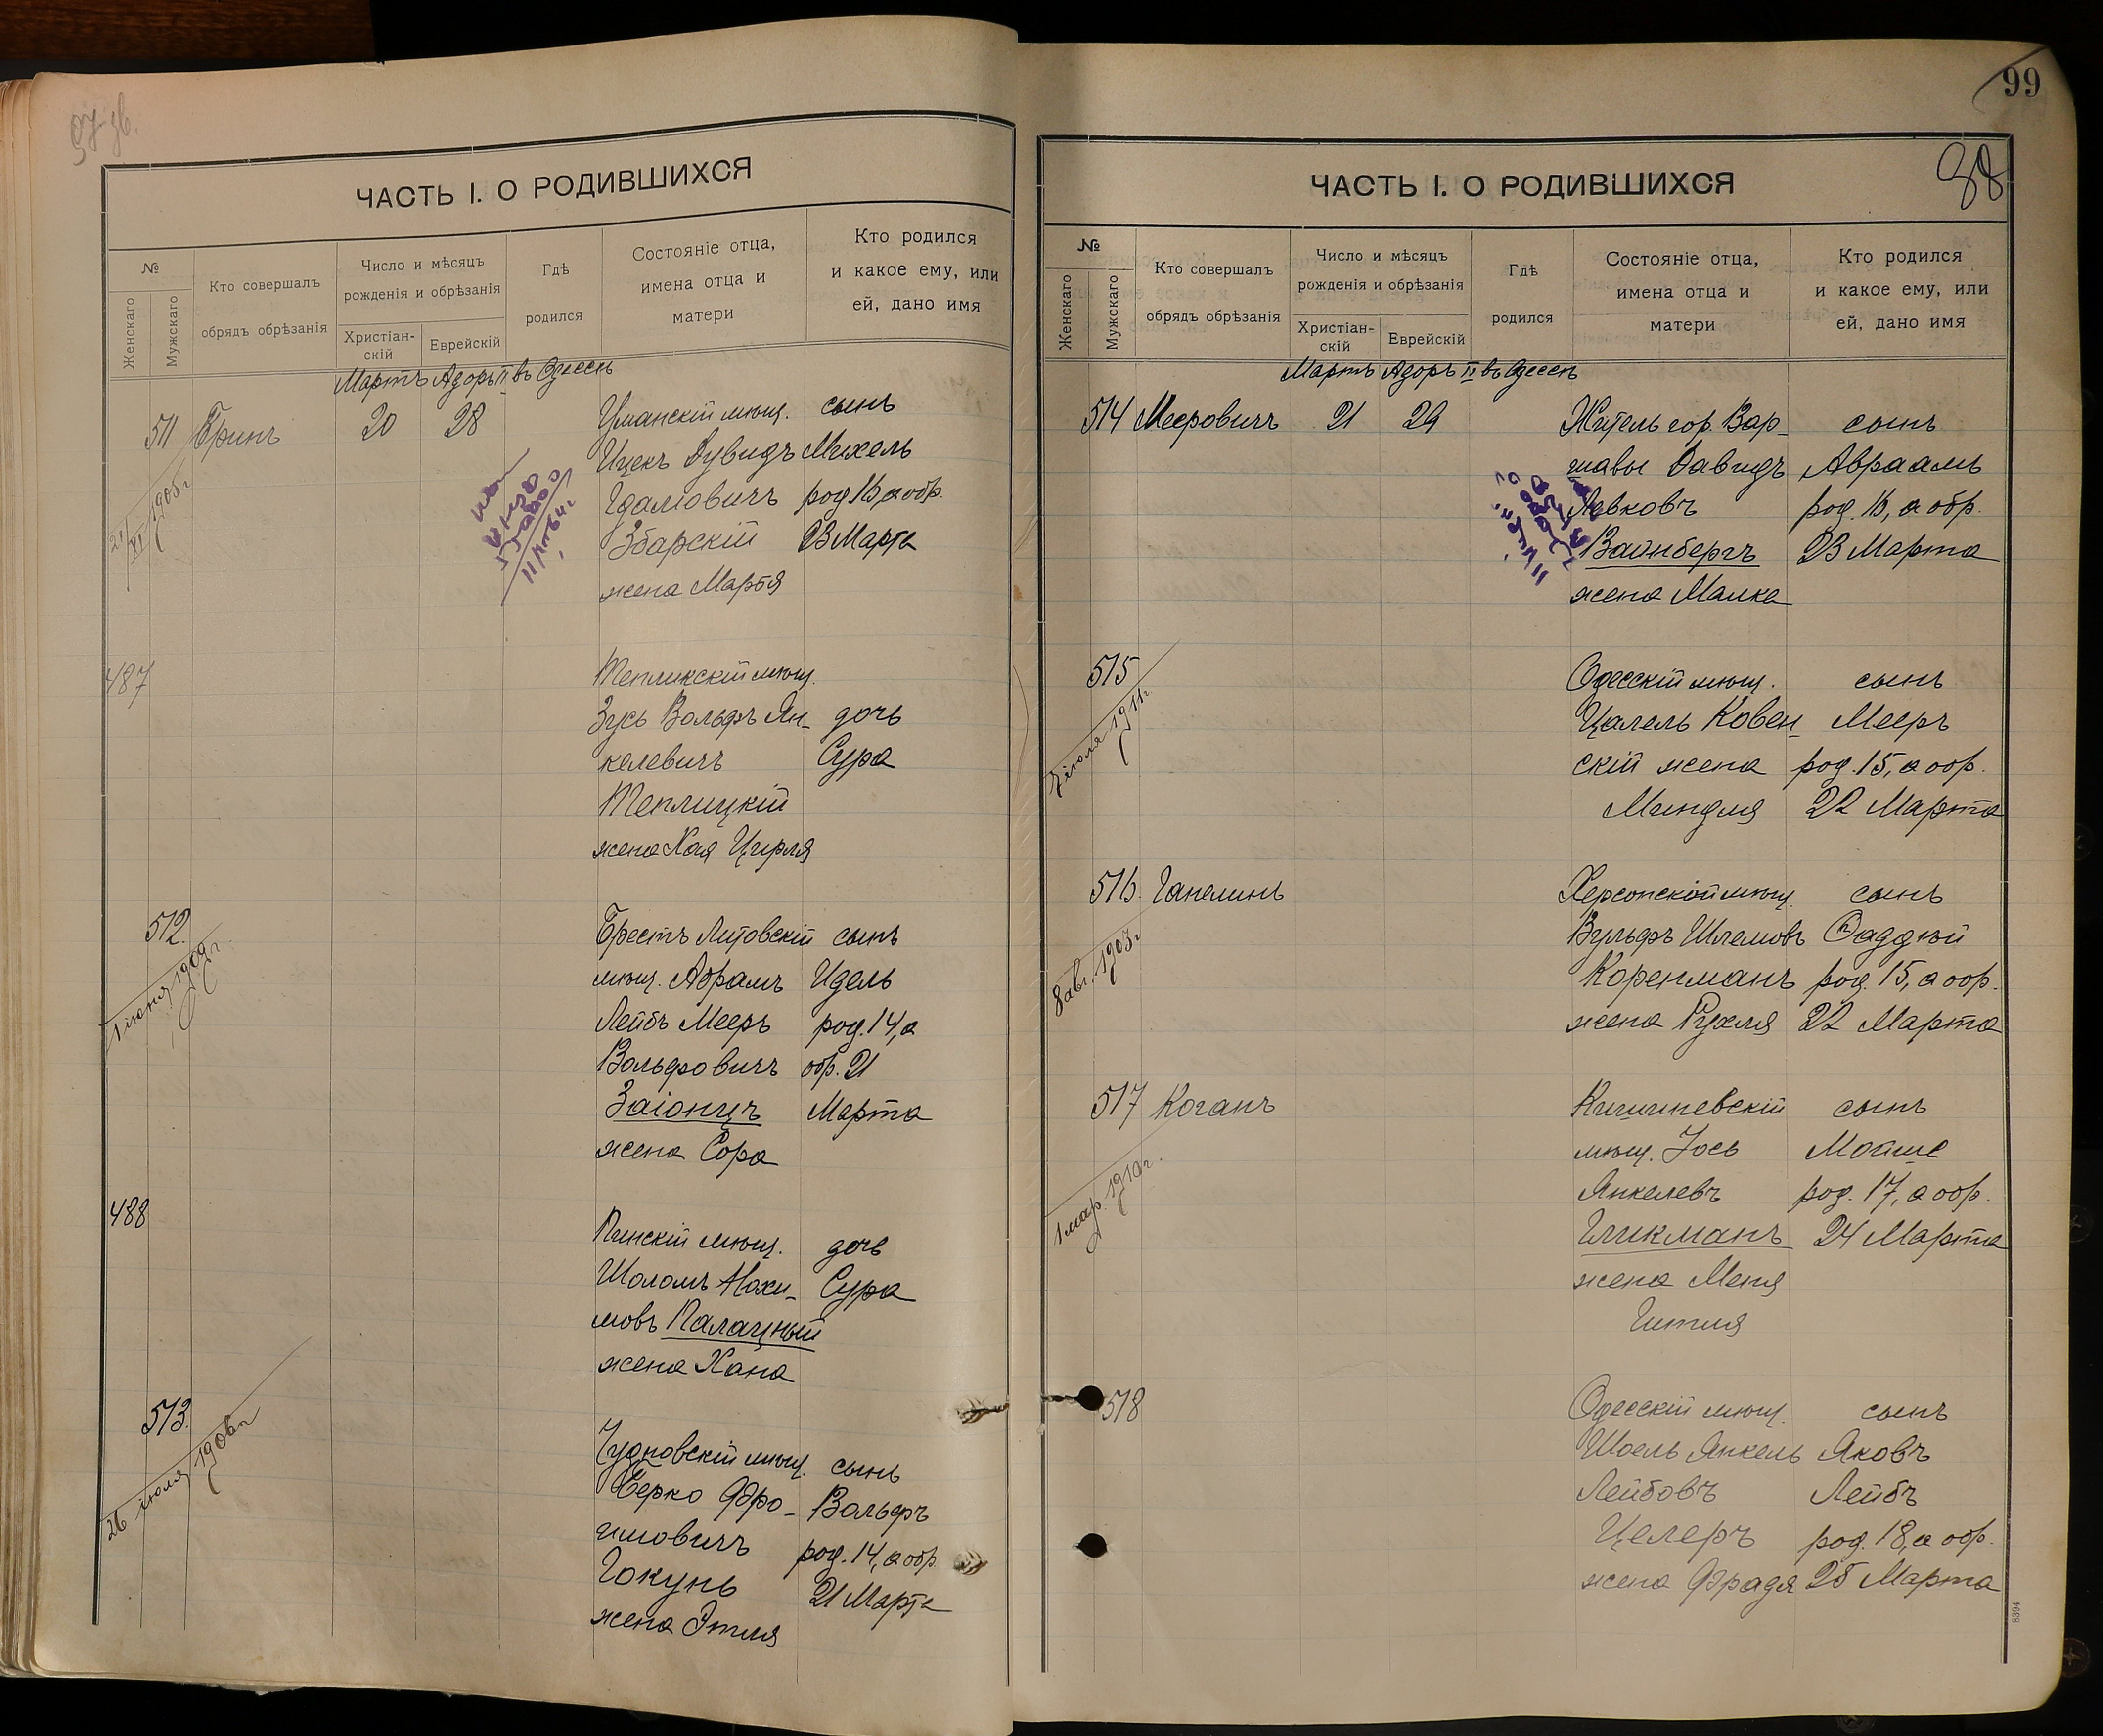 ЧАСТЬ I. О РОДИВШИХСЯ
№
Женскаго
Мужскаго
Кто совершалъ
обрядъ обрѣзанія
Число и мѣсяцъ
рожденія и обрѣзанія
Христіан-
скій
Еврейскій
Гдѣ
родился
Состояніе отца,
имена отца и
матери
Кто родился
и какое ему, или
ей, дано имя
Мартъ Адоръ II въ Одессѣ
511 Бринъ 20 28
Уманскій мѣщ.
Ицекъ Дувидъ
Збарскій
жена Марья
сынъ
Михель
род. 16, а обр.
23 Марта
1905г
487
Тепликскій мѣщ.
Зусь Вольфъ Ян-
келевичъ
Теплицкій
жена Хая Цирля
дочь
Сура
512.
1 іюня 1909г.
Брестъ Литовскій
мѣщ. Абрамъ
Лейбъ Мееръ
Вольфовичъ
Заіонцъ
жена Сора
сынъ
Идель
род. 14, а
обр. 21
Марта
488
Пинскій мѣщ.
Шоломъ Нохи-
мовъ Палацный
жена Хана
дочь
Сура
513.
26 іюля 1906г
Чудновскій мѣщ.
Берко Фро-
имовичъ
Гокунь
жена Этля
сынъ
Вольфъ
род. 14, а обр.
21 Марта
99
88
ЧАСТЬ I. О РОДИВШИХСЯ
№
Женскаго
Мужскаго
Кто совершалъ
обрядъ обрѣзанія
Число и мѣсяцъ
рожденія и обрѣзанія
Христіан-
скій
Еврейскій
Гдѣ
родился
Состояніе отца,
имена отца и
матери
Кто родился
и какое ему, или
ей, дано имя
Мартъ Адоръ II въ Одессѣ
514 Мееровичъ 21 29
Житель гор. Вар-
шавы Давидъ
Левковъ
Вайнбергъ
жена Малка
сынъ
Авраамъ
род. 16, а обр.
23 Марта
515
іюля 1911г.
Одесскій мѣщ.
Цалель Ковен-
скій жена
Миндля
сынъ
Мееръ
род. 15, а обр.
22 Марта
516. Ганелинъ
8 авг. 1903г
Херсонскій мѣщ.
Вульфъ Шлемовъ
Коренманъ
жена Рухля
сынъ
род. 15, а обр.
22 Марта
517 Коганъ
1 мар. 1910г.
Кишиневскій
мѣщ. Іось
Янкелевъ
Гликманъ
жена Меня
Гитля
сынъ
Мойше
род. 17, а обр.
24 Марта
518
Одесскій мѣщ.
Шоель Янкель
Лейбовъ
Целеръ
жена Фрадя
сынъ
Яковъ
Лейбъ
род. 18, а обр.
25 Марта
8394